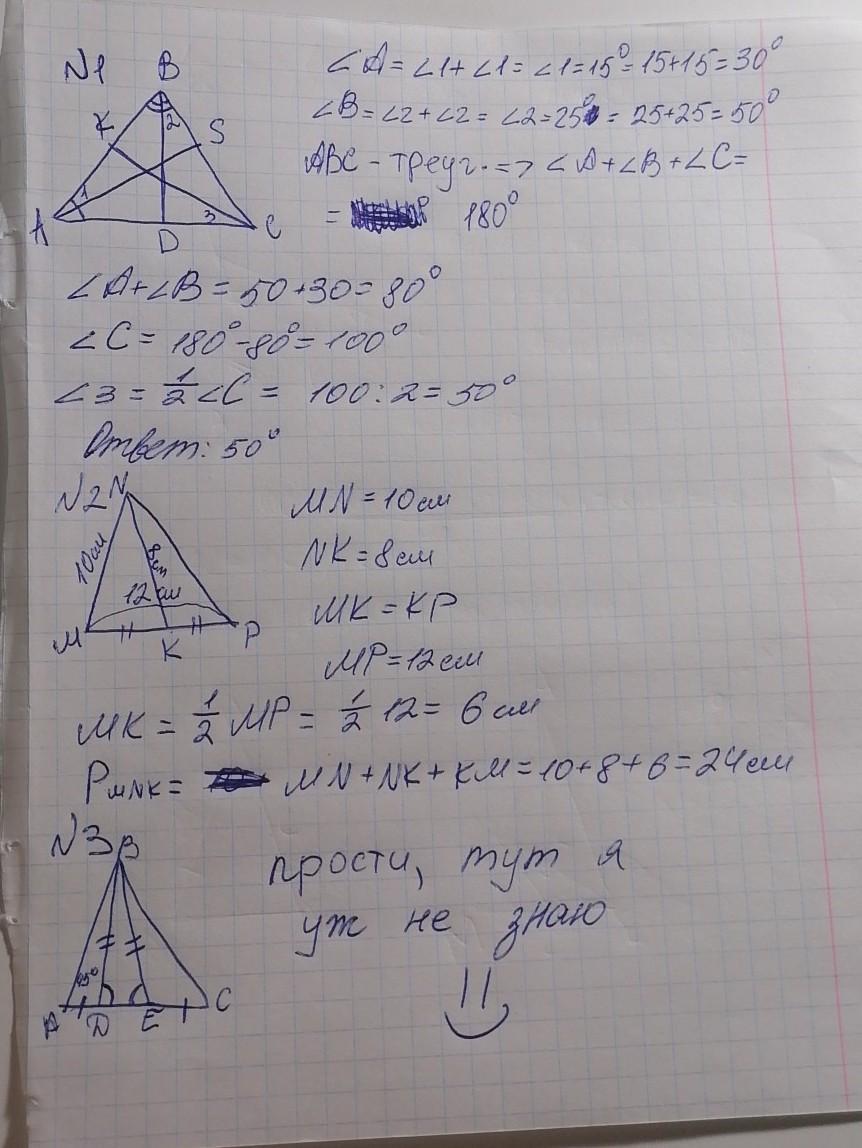 N1
B
K
2
S
A
1
3
D
C
∠A = ∠1+∠1 = ∠1=15° = 15+15=30°
∠B = ∠2+∠2 = ∠2=25° = 25+25=50°
ABC - треуг. => ∠A+∠B+∠C=
= 180°
∠A+∠B = 50+30= 80°
∠C = 180°-80°= 100°
∠3 = 1/2 ∠C = 100:2=50°
Ответ: 50°
N2
N
10см
8см
12см
M
K
P
MN = 10см
NK = 8см
MK = KP
MP = 12см
MK = 1/2 MP = 1/2 12 = 6 см
P MNK = MN+NK+KM=10+8+6=24см
N3
B
A
D
E
C
прости, тут я
уж не знаю